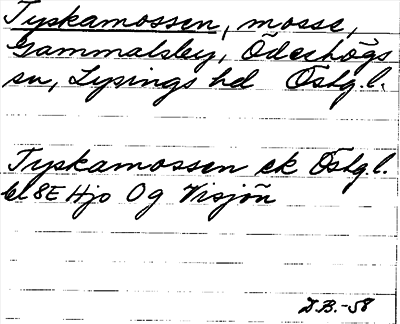 Tyskamossen, mosse,
Gammalsby, Ödeshögs
sn, Lysings hd Östg.l.
Tyskamossen ek Östg.l.
bl 8E Hjo Og Visjön
D.B.-58